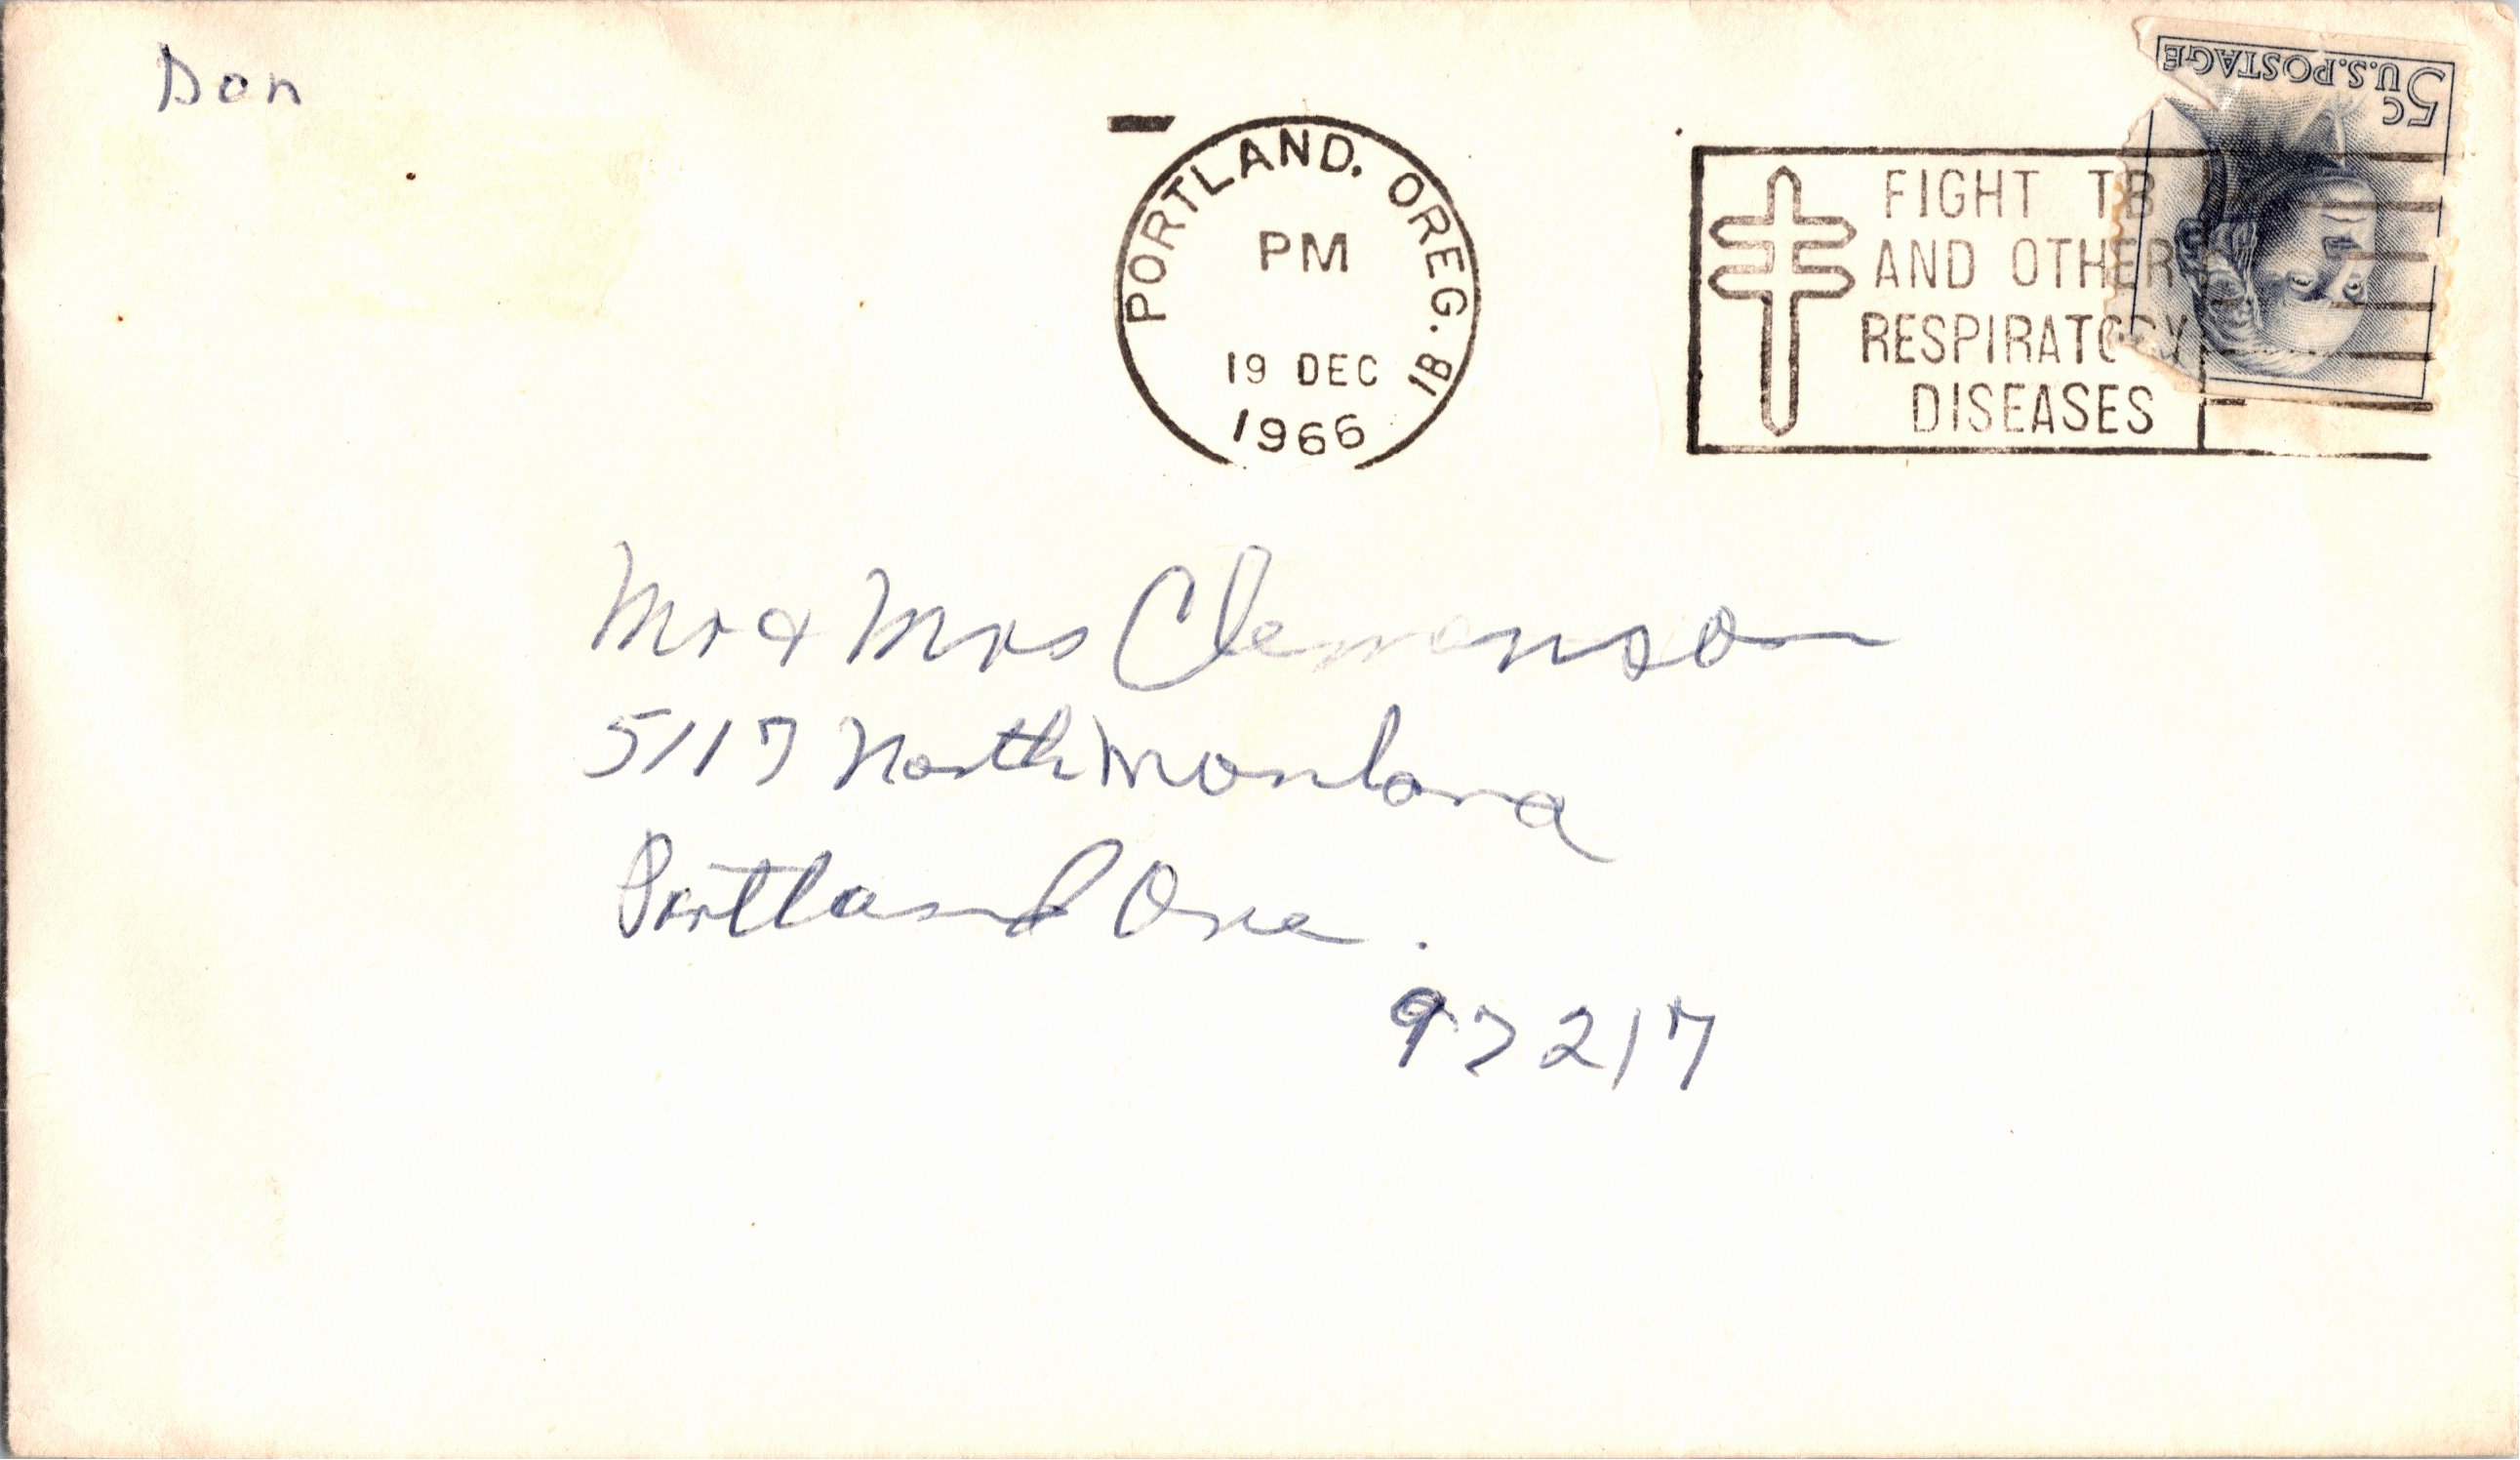 Don
PORTLAND, OREG. 81
PM
19 DEC
1966
FIGHT TB
AND OTHER
RESPIRATORY
DISEASES
5c
U.S.POSTAGE
Mr & Mrs Clemenson
5117 North Montana
Portland Ore.
97217